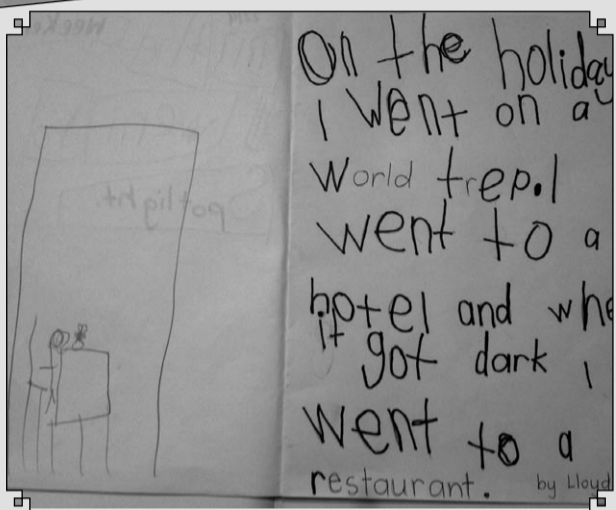 On the holiday
I went on a
World trep. I
went to a
hotel and
it got dark I
went to a
restaurant. by Lloyd
potlight.